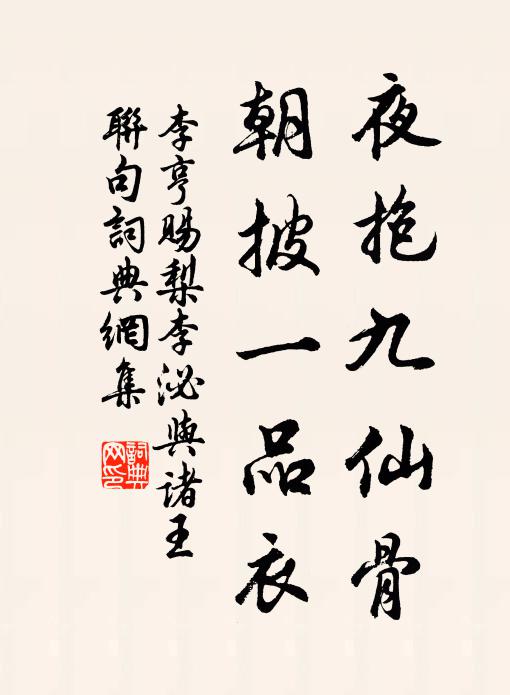 夜抱九仙骨
朝披一品衣
李亨賜梨李泌與诸王
聯句詞典網集
詞典网印